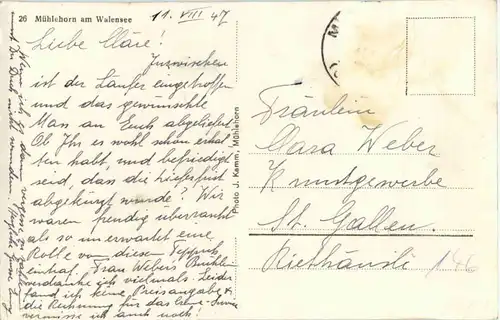 26 Mühlehorn am Walensee
11. VIII 47
Liebe Cläre!
Inzwischen
ist der Läufer eingetroffen
und das gewünschte
Mass an Euch abgeliefert.
Ob Ihr es wohl schon erhal-
ten habt, und befriedigt
seid, dass die Lieferfrist
abgekürzt wurde? Wir
waren freudig überrascht
als so unerwartet eine
Rolle von diesem Teppich
eintraf. Frau Webers
verdanke ich vielmals. Leider
fand ich keine Preisangabe &
die Rechnung für das
vermisse ich auch noch!
Wenn ich
Photo J. Kamm, Mühlehorn
Fräulein
Clara Weber
Kunstgewerbe
St. Gallen
Riethäusli
146